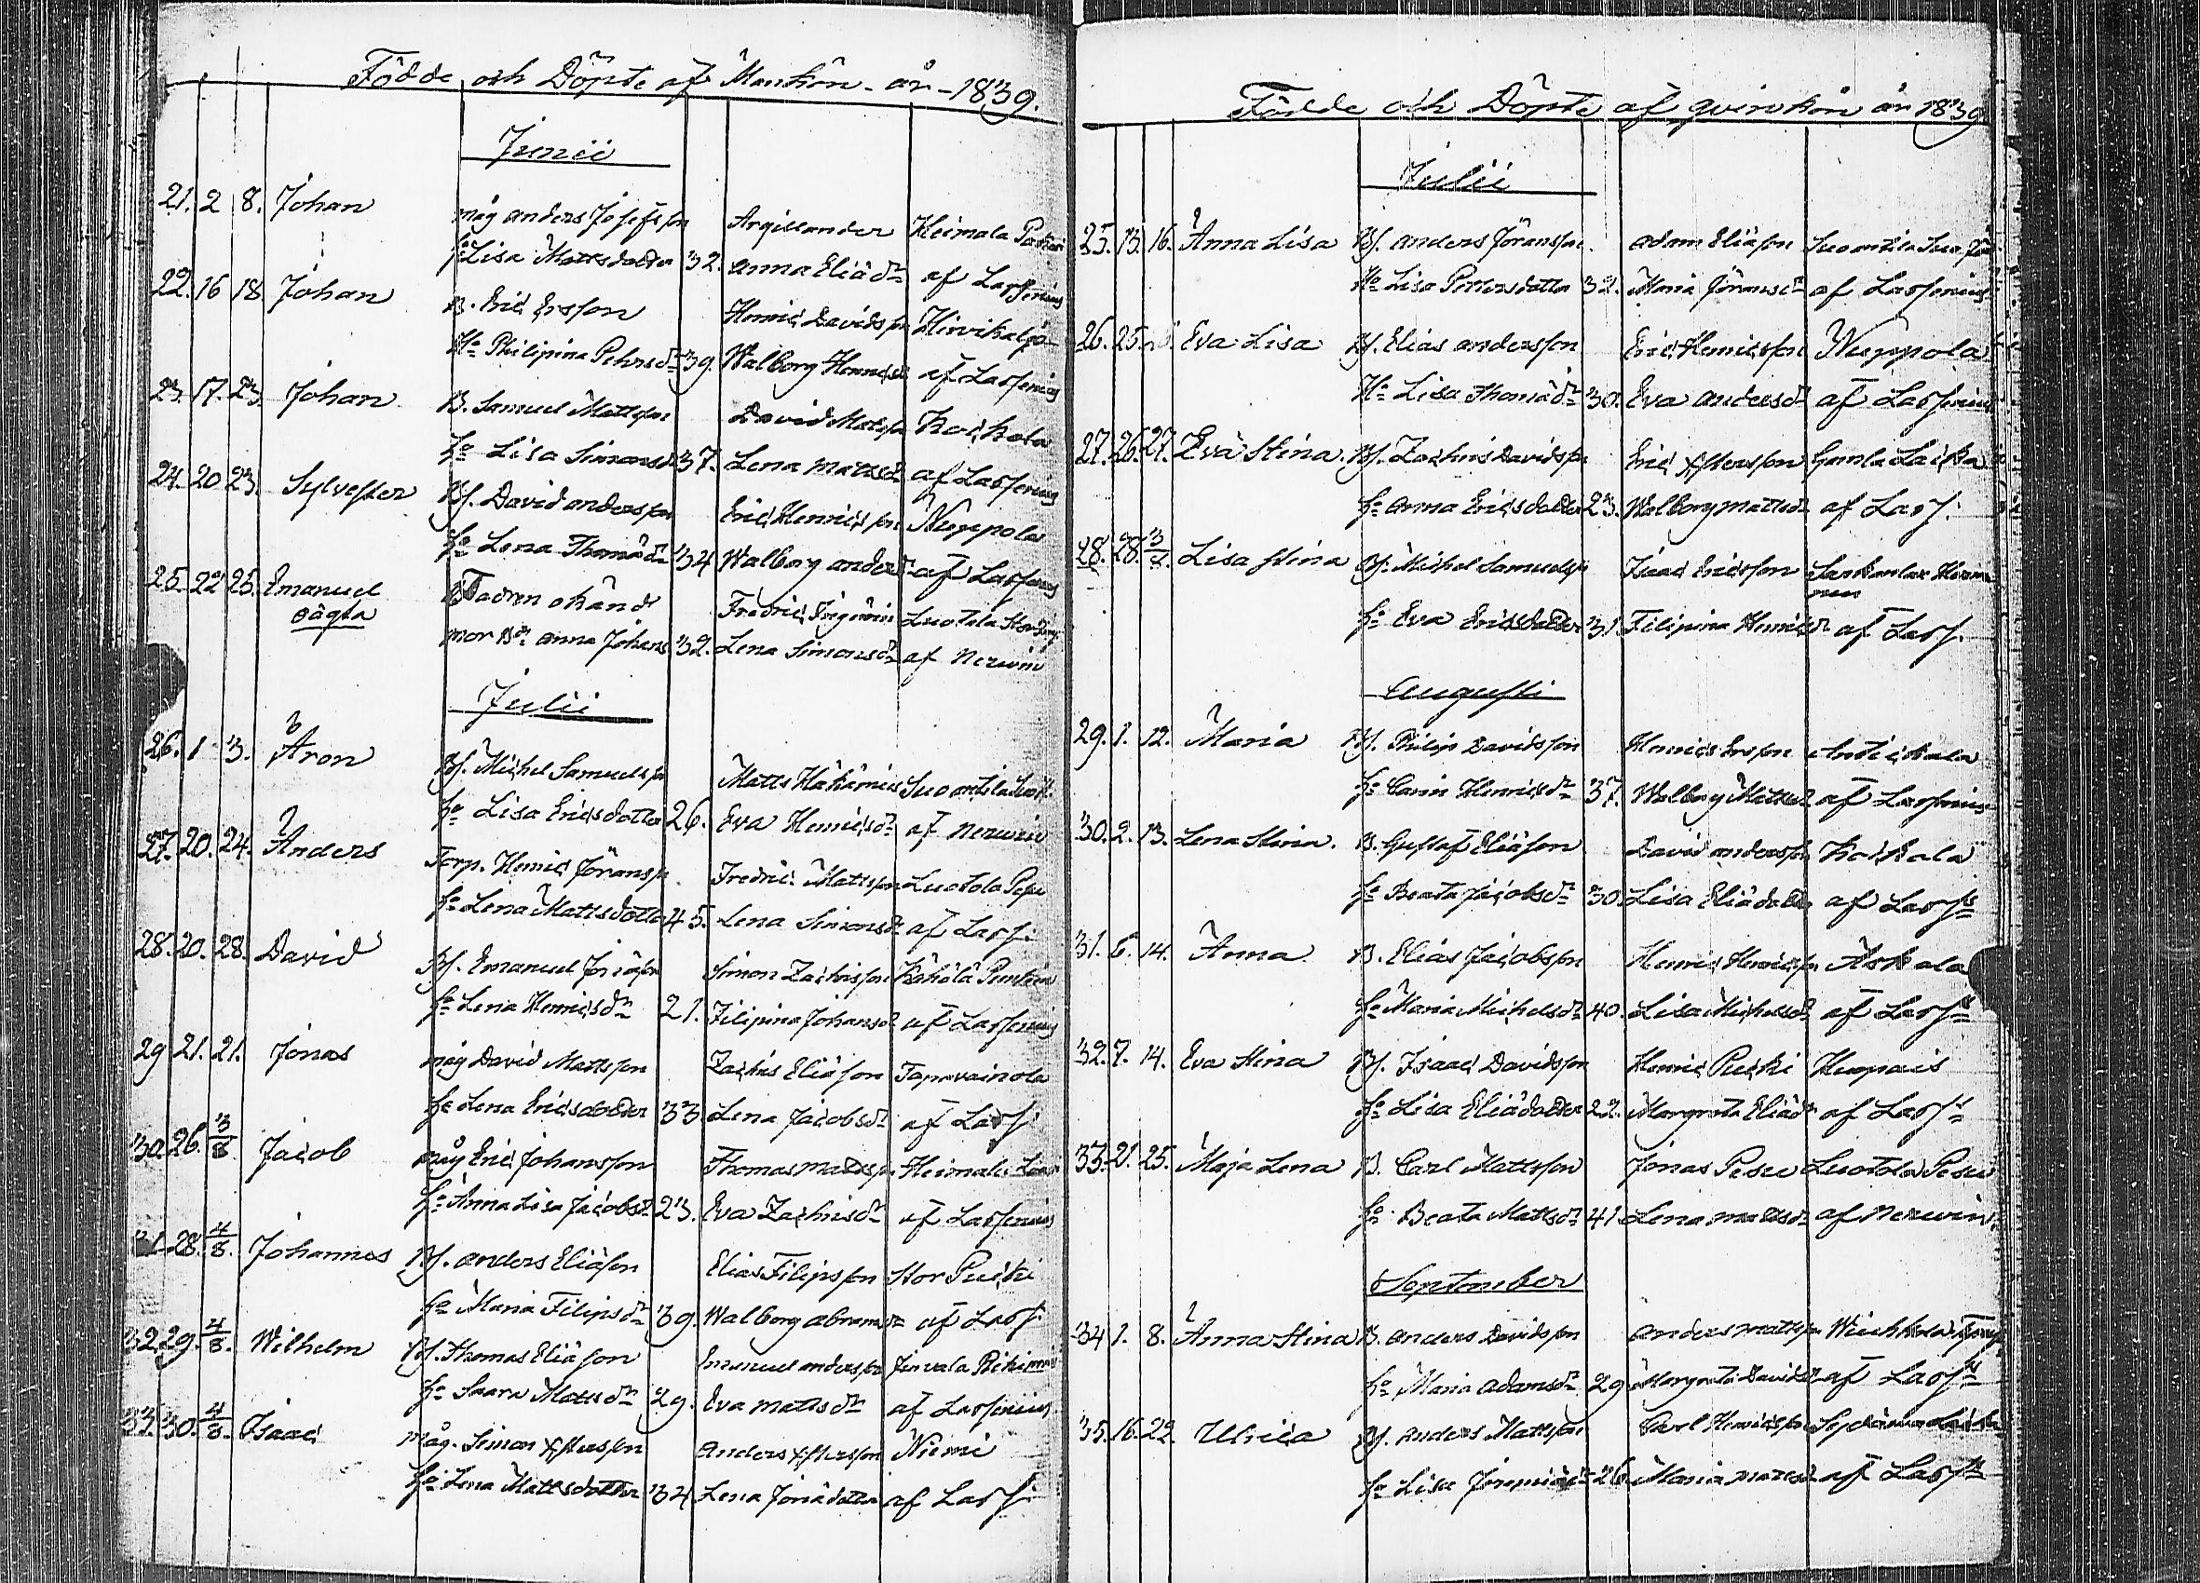 Födde och Döpte af Mankön år 1839.
Junii
21. 2 8. Johan måg Anders Josefsson Argillander Heimala
h:o Lisa Mattsdotter 32. Anna Eliæd:r af Lassenius
22. 16 18 Johan B. Eric Ersson Henric Davidsson Hirvikaljo
H:o Philipina Pehrsd:r 39. Walborg Henricsd. af Lassenius
23. 17. 23. Johan B. Samuel Mattsson David Mattsson Koikala
h:o Lisa Simonsd. 37. Lena Mattsd:r af Lassenius
24. 20 23. Sylvester Bs. David Andersson Eric Henricsson Nuppola
h:o Lena Thomæd:r 34 Walborg Andersd:r af Lassenius
25. 22 25. Emanuel Fadren okänd Fredric Luotola
oägta mor Anna Johans 32. Lena Simonsd:r af Nerwin
Julii
26. 1 3. Aron Bs. Michel Samuelsson Matts Häkämies Suoantila
h:o Lisa Ericsdotter 26. Eva Henricsd:r af Nerwin
27. 20. 24. Anders Torp. Henric Jöransson Fredric Mattsson Luotola Pesu
h:o Lena Mattsdotter 45. Lena Simonsd:r af Lass:
28. 20. 28. David Bs. Emanuel Simon Zachrisson Kähölä
h:o Lena Henricsd:r 21. Filipina Johansd:r af Lassenius
29 21. 21. Jonas måg David Mattsson Zachris Eliæson Tapavainola
h:o Lena Ericsdotter 33 Lena Jacobsd:r af Lass:
30. 26. 3/8 Jacob måg Eric Johansson Thomas Mattsson Heimala
h:o Anna Lisa Jacobsd:r 23. Eva Zachrisd:r af Lassenius
31. 28. 4/8. Johannes Bs. Anders Eliæson Elias Filipsson Stor Pucki
h:o Maria Filipsd:r 39. Walborg Abramsd:r af Lass:
32 29. 4/8. Wilhelm Bs. Thomas Eliæson Emanuel Andersson Jurvala
h:o Saara Mattsd:r 29. Eva Mattsd:r af Lassenius
33. 30. 4/8. Isaac måg. Simon Anders Niemi
h:o Lena Mattsdotter 34 Lena Joriædotter af Lass:
Födde och Döpte af qvinkön år 1839
Julii
25. 13. 16. Anna Lisa Bs. Anders Jöransson Adam Eliæson Suoantila
H:o Lisa Pettersdotter 32. Maria Jöransd:r af Lassenius
26. 25. Eva Lisa Bs. Elias Andersson Eric Henricsson Nuppola
H:o Lisa Thomæd:r 30. Eva Andersd:r af Lassenius
27. 26. 27. Eva Stina. Bs. Zachris Davidsson Eric Gamla Laicka
h:o Anna Ericsdotter 23. Walborg Mattsd:r af Lass:
28. 28. 3/8. Lisa Stina Bs. Michel Samuelsson Isaac Ericsson
h:o Eva Ericsdotter 31 Filipina Henricsd:r af Lass.
Augusti
29. 1. 12. Maria Bs. Philip Davidsson Henric Ersson
h:o Carin Henricsd:r 37. Walborg Mattsd:r af Lassenius
30. 2. 13. Lena Stina. B. Gustaf Eliæson David Andersson Koikala
h:o Beata Jacobsd:r 30. Lisa Eliædotter af Lass:
31. 6. 14. Anna B. Elias Jacobsson Henric Henricsson Askola
h:o Maria Michelsd:r 40. Lisa Michelsd:r af Lass:
32. 7. 14. Eva Stina Bs. Isaac Davidsson Henric Pucki Hurpais
h:o Lisa Eliædotter 22. Margreta Eliæd:r af Lass:
33. 21. 25. Maja Lena B. Carl Mattsson Jonas Pesu Luotola Pesu
h:o Beata Mattsd:r 41 Lena Mattsd:r af Nerwin.
September
34 1. 8. Anna Stina B. Anders Davidsson Anders Mattsson
h:o Maria Adamsd:r 29 Margreta Davidsd:r af Lass:
35. 16. 22. Ulrica Bs. Anders Mattsson Carl Henricsson
h:o Lisa Jeremiæd:r 26. Maria Mattsd:r af Lass: